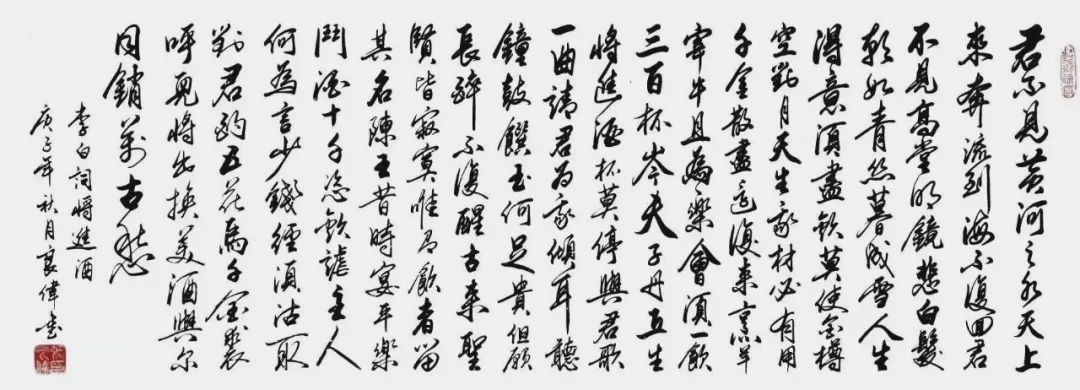 君不見黃河之水天上
來奔流到海不復回君
不見高堂明鏡悲白髮
朝如青絲暮成雪人生
得意須盡歡莫使金樽
空對月天生我材必有用
千金散盡還復來烹羊
宰牛且為樂會須一飲
三百杯岑夫子丹丘生
將進酒杯莫停與君歌
一曲請君為我傾耳聽
鐘鼓饌玉何足貴但願
長醉不復醒古來聖
賢皆寂寞唯有飲者留
其名陳王昔時宴平樂
鬥酒十千恣歡謔主人
何為言少錢經須沽取
對君酌五花馬千金裘
呼兒將出換美酒與爾
同銷萬古愁
李白詞將進酒
庚子年秋月良偉書